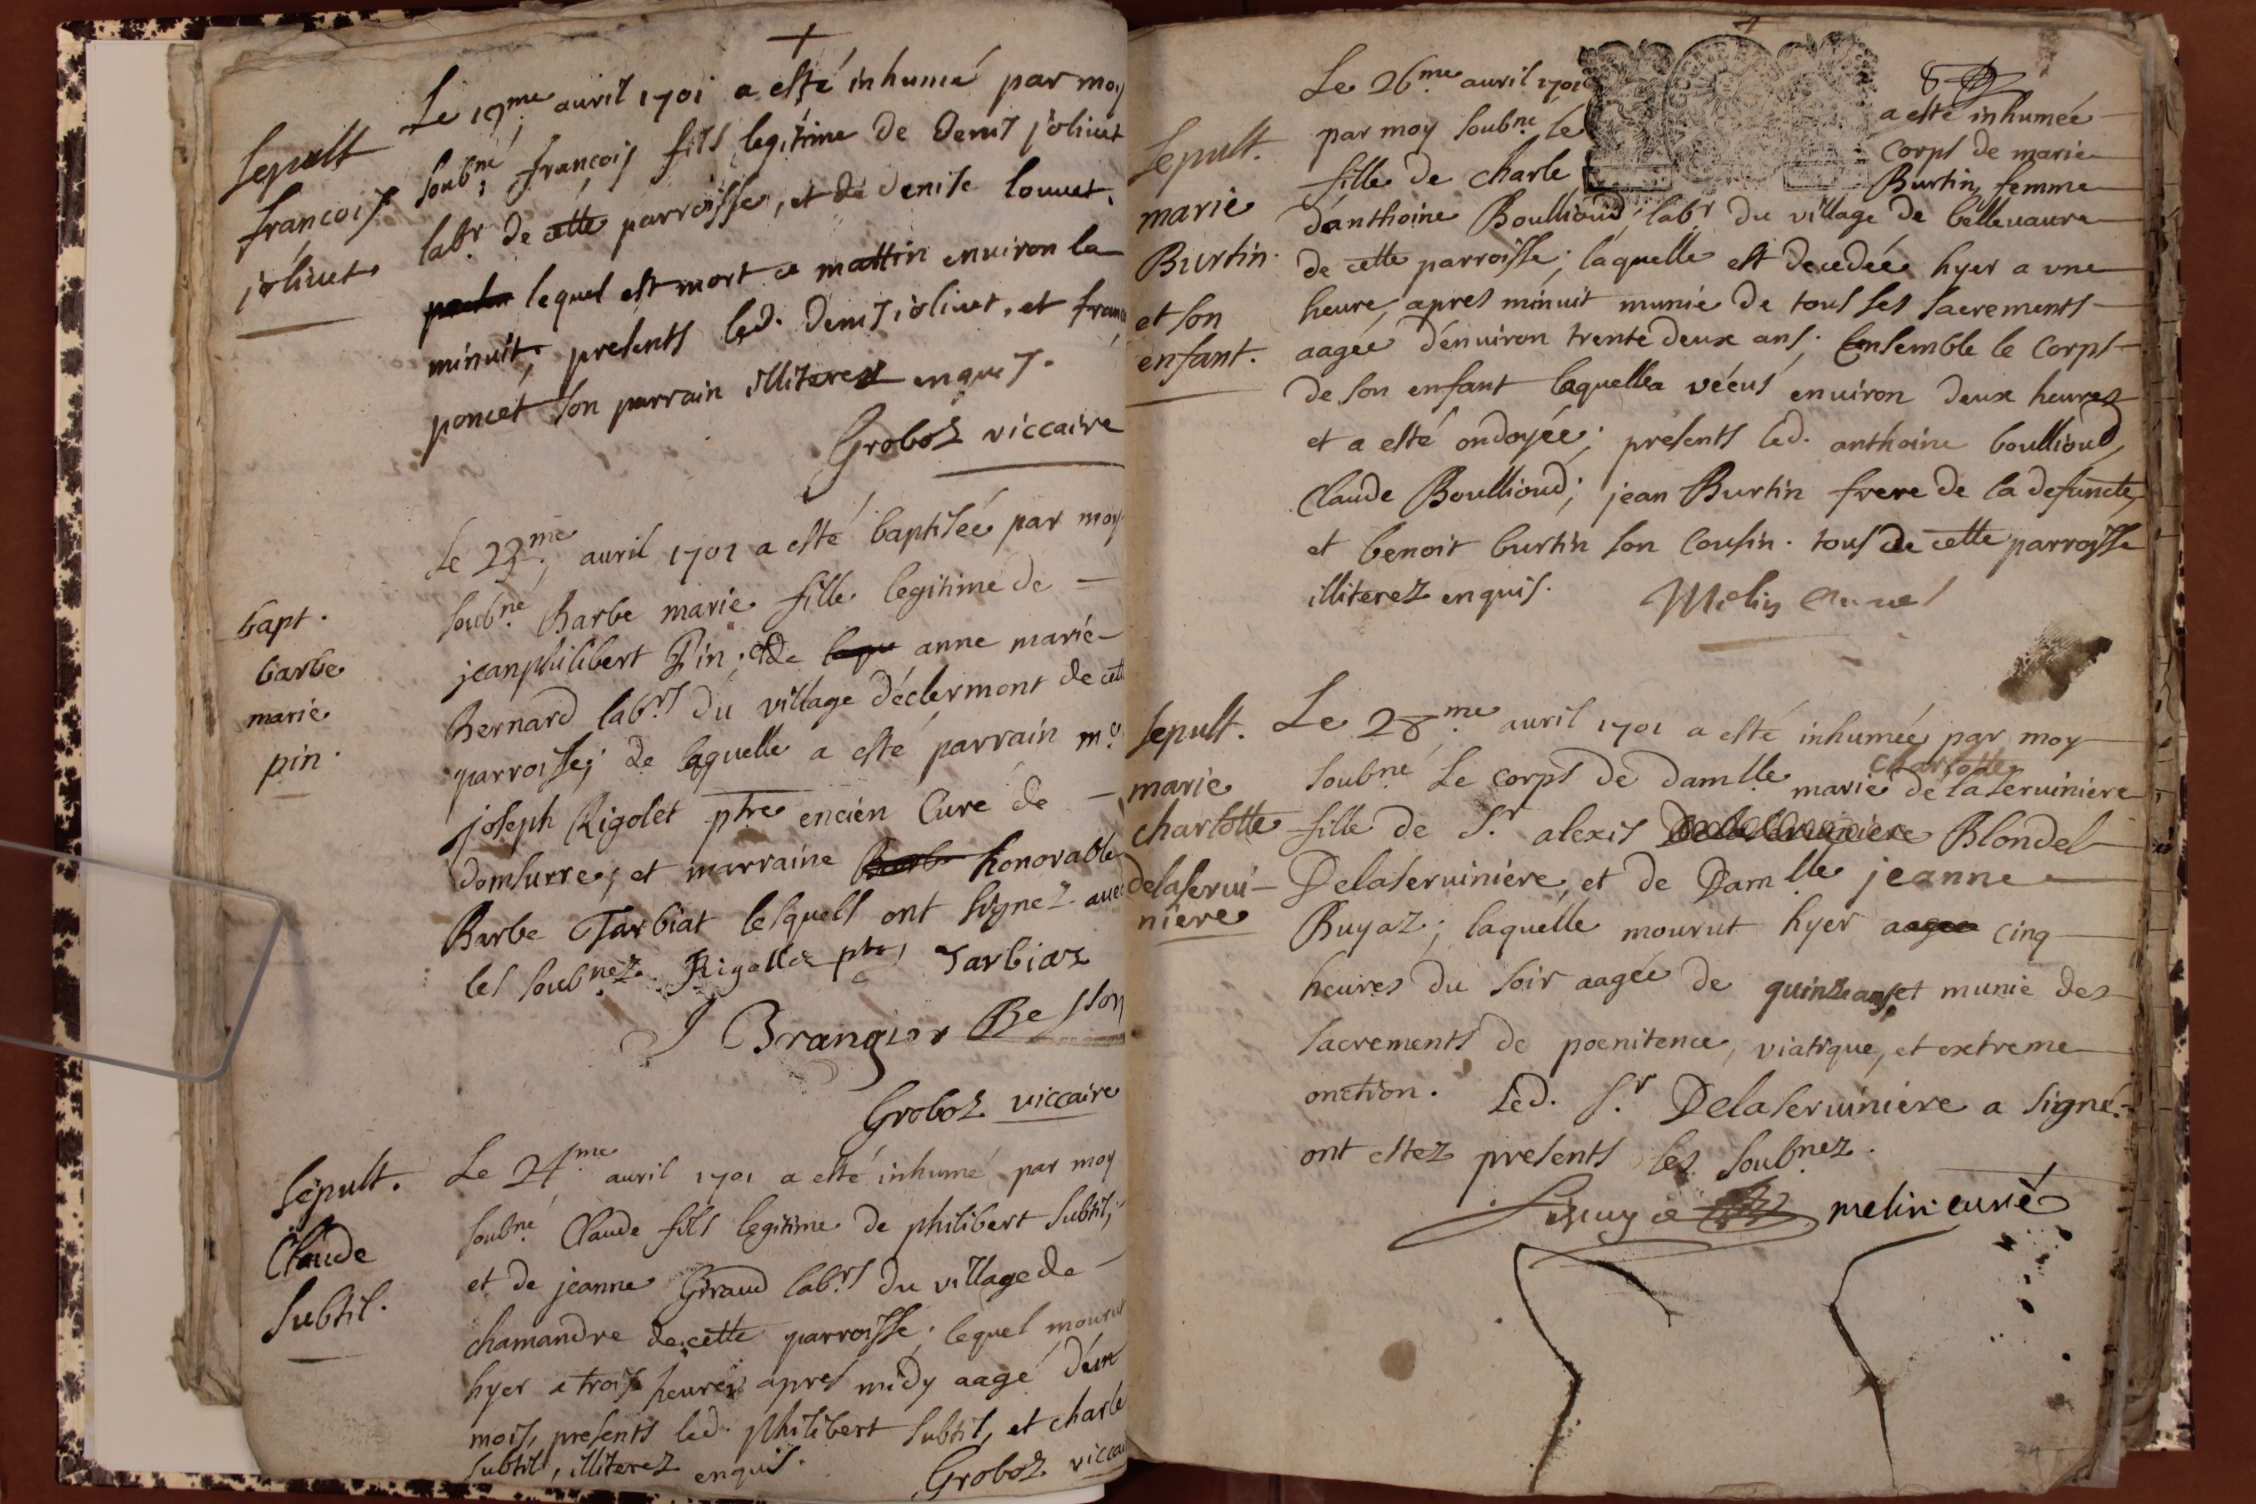 Sepult
francois
jolivet
Le 19me avril 1701 a esté inhumé par moy
soubné françois fils legitime de denis jolivet
labr de cette parroisse, et de denise louvet.
lequel est mort ce mattin environ la
minuit, presents led. denis jolivet, et franc
poncet son parrain illiterez enquis.
Groboz viccaire
bapt.
barbe
marie
pin.
Le 23me avril 1701 a esté baptisée par moy
soubné Barbe marie fille legitime de
jeanphilibert Pin, et de anne marie
Bernard labrs du village déclermont de cett
parroisse; de laquelle a esté parrain me
joseph Rigolet ptre encien Curé de
domsurre, et marraine honorable
Barbe Tarbiat lesquels ont signez avec
les soubnez. Rigollet ptre Tarbiaz
J Brangier Besson
Groboz viccaire
Sepult.
Claude
Subtil.
Le 24me avril 1701 a esté inhumé par moy
soubné Claude fils legitime de philibert Subtil,
et de jeanne Giraud labrs du village de
chamandre de cette parroisse; lequel mourut
hyer a trois heures apres midy aagé d'un
mois, presents led. philibert Subtil, et charle
subtil, illiterez enquis.
Groboz viccai
8
Sepult.
marie
Burtin.
et son
enfant.
Le 26me avril 1701 a esté inhumée
par moy soubné le corps de marie
fille de charle Burtin, femme
d'anthoine Boullioud, labr du village de bellevavre
de cette parroisse; laquelle est decedée hyer a une
heure apres minuit munie de tous ses sacrements
aagée d'environ trente deux ans; Ensemble le corps
de son enfant laquelle a véëus environ deux heures
et a esté ondoyée; presents led. anthoine boullioud,
Claude Boullioud; jean Burtin frere de la defuncte,
et benoit burtin son cousin. tous de cette parroisse
illiterez enquis.
Melin Curé
Sepult.
marie
charlotte
delaservi-
niere
Le 28me avril 1701 a esté inhumée par moy
charlotte
soubné Le corps de damlle marie de laserviniere
fille de Sr alexis Delaserviniere Blondel
Delaserviniere, et de Damlle jeanne
Buyaz; laquelle mourut hyer cinq
heures du soir aagée de quinze ans, et munie des
sacrements de poenitence, viatique, et extreme
onction. Led. Sr Delaserviniere a signé.
ont estez presents les soubnez.
melin curé